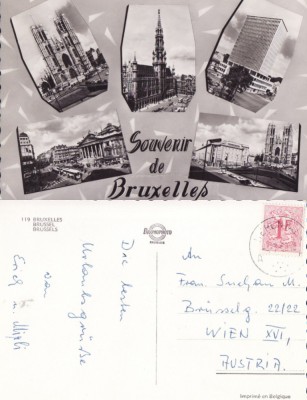 Souvenir
de
Bruxelles
119 BRUXELLES
BRUSSEL
BRUSSELS
Die besten
Urlaubsgrüße
von
Erich u. Mizzi
An
Fam.
M.
Brüsselg. 22/22
WIEN XVI,
AUSTRIA.
1F
Imprimé en Belgique